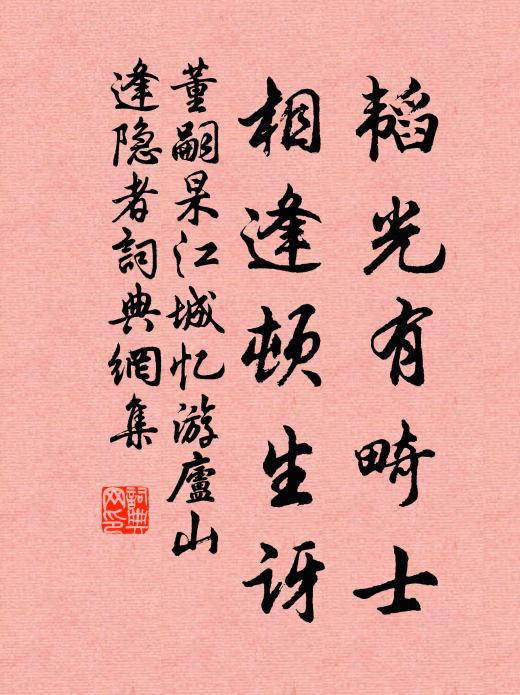 韬光有畸士
相逢顿生讶
董嗣杲江城忆游廬山
逢隐者詞典網集
詞典网印